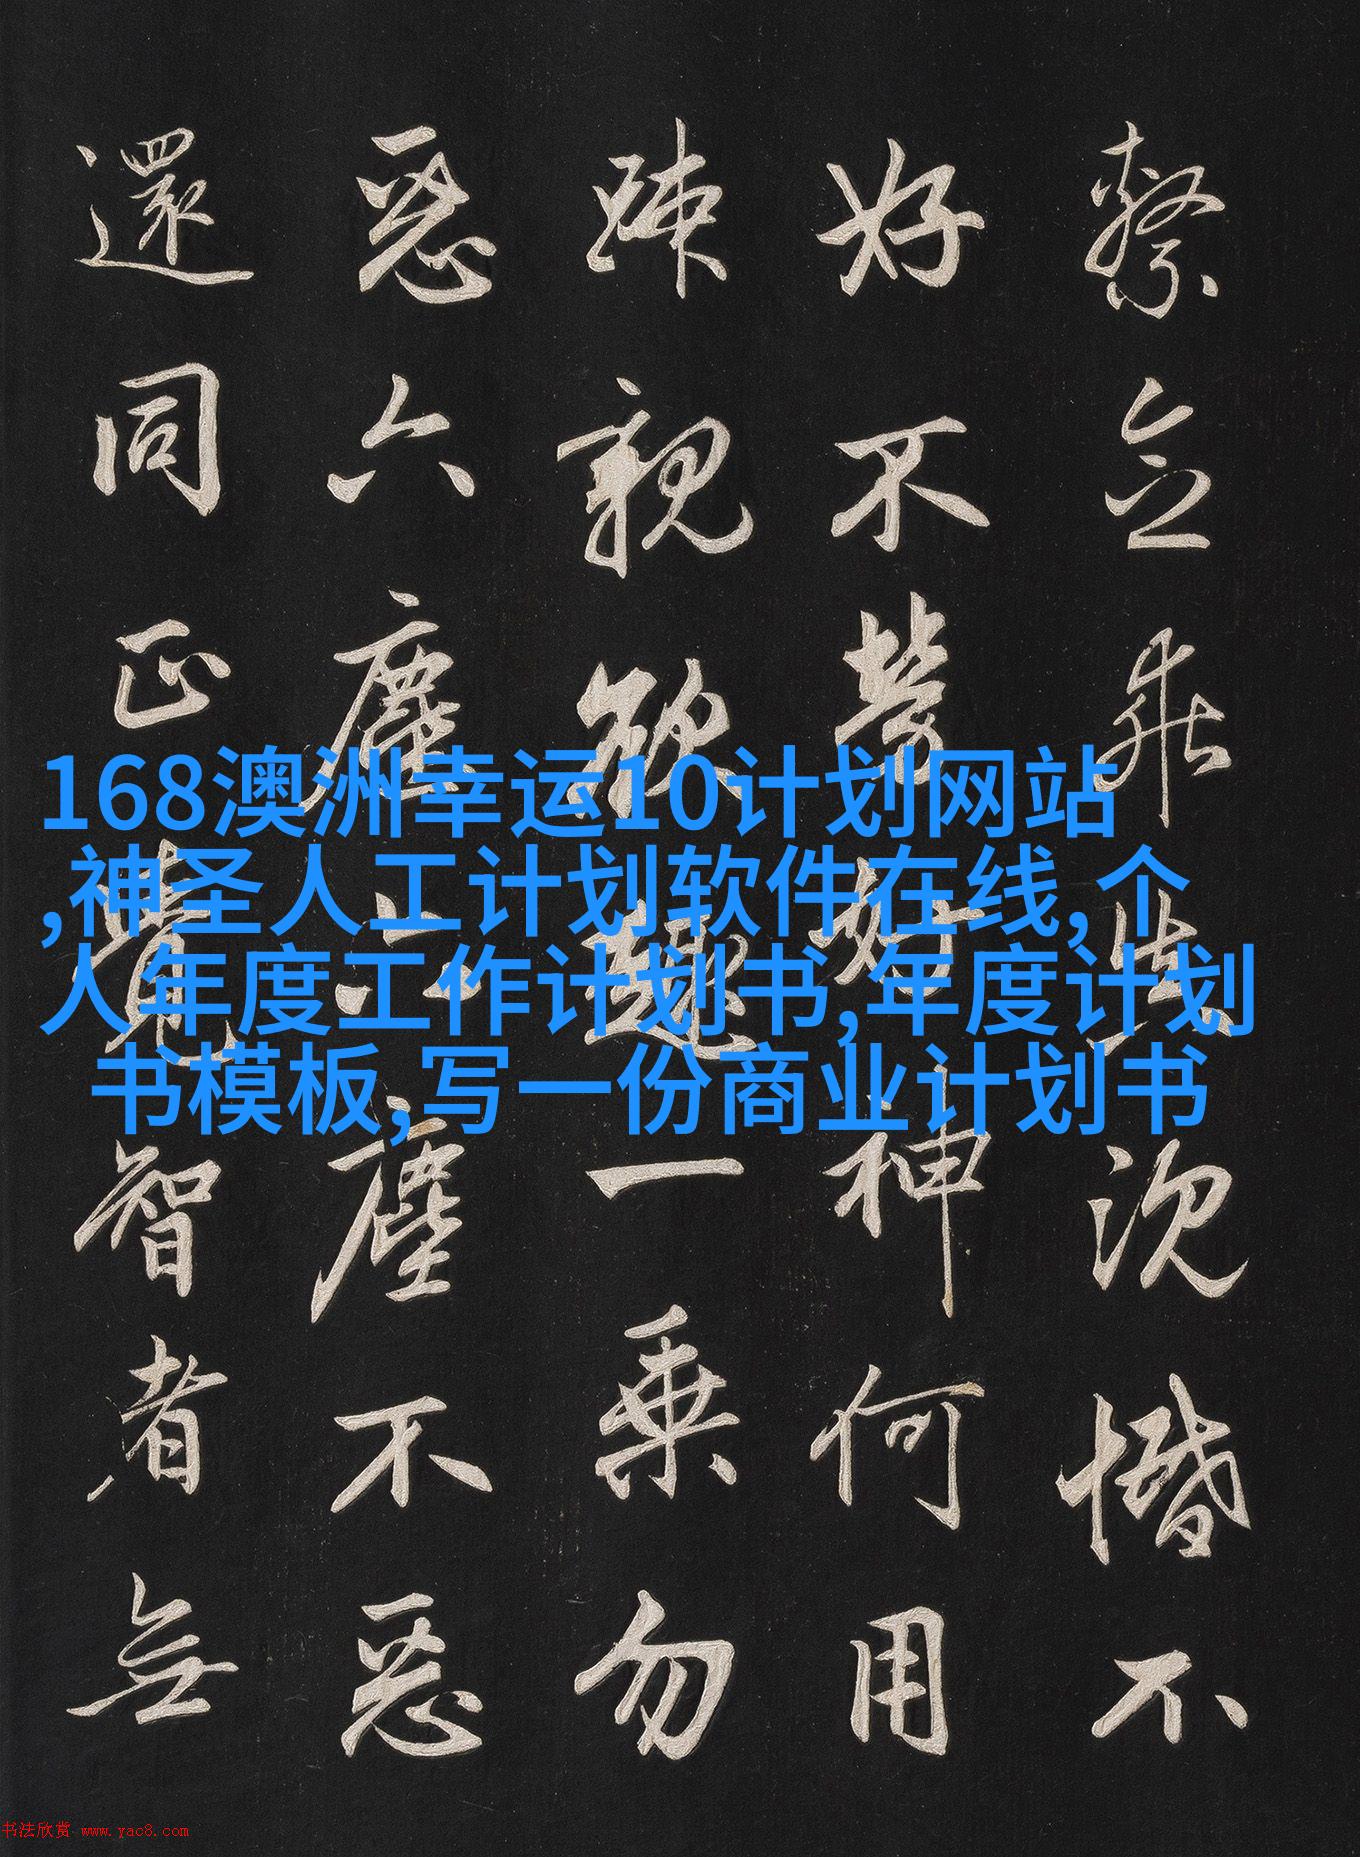 繫念乖真沉惛不
好不勞好神何用
疎親欲趣一乘勿
惡六塵六塵不惡
還同正覺智者無
168澳洲幸运10计划网站
,神圣人工计划软件在线,个
人年度工作计划书,年度计划
书模板,写一份商业计划书
书法欣赏 www.yac8.com